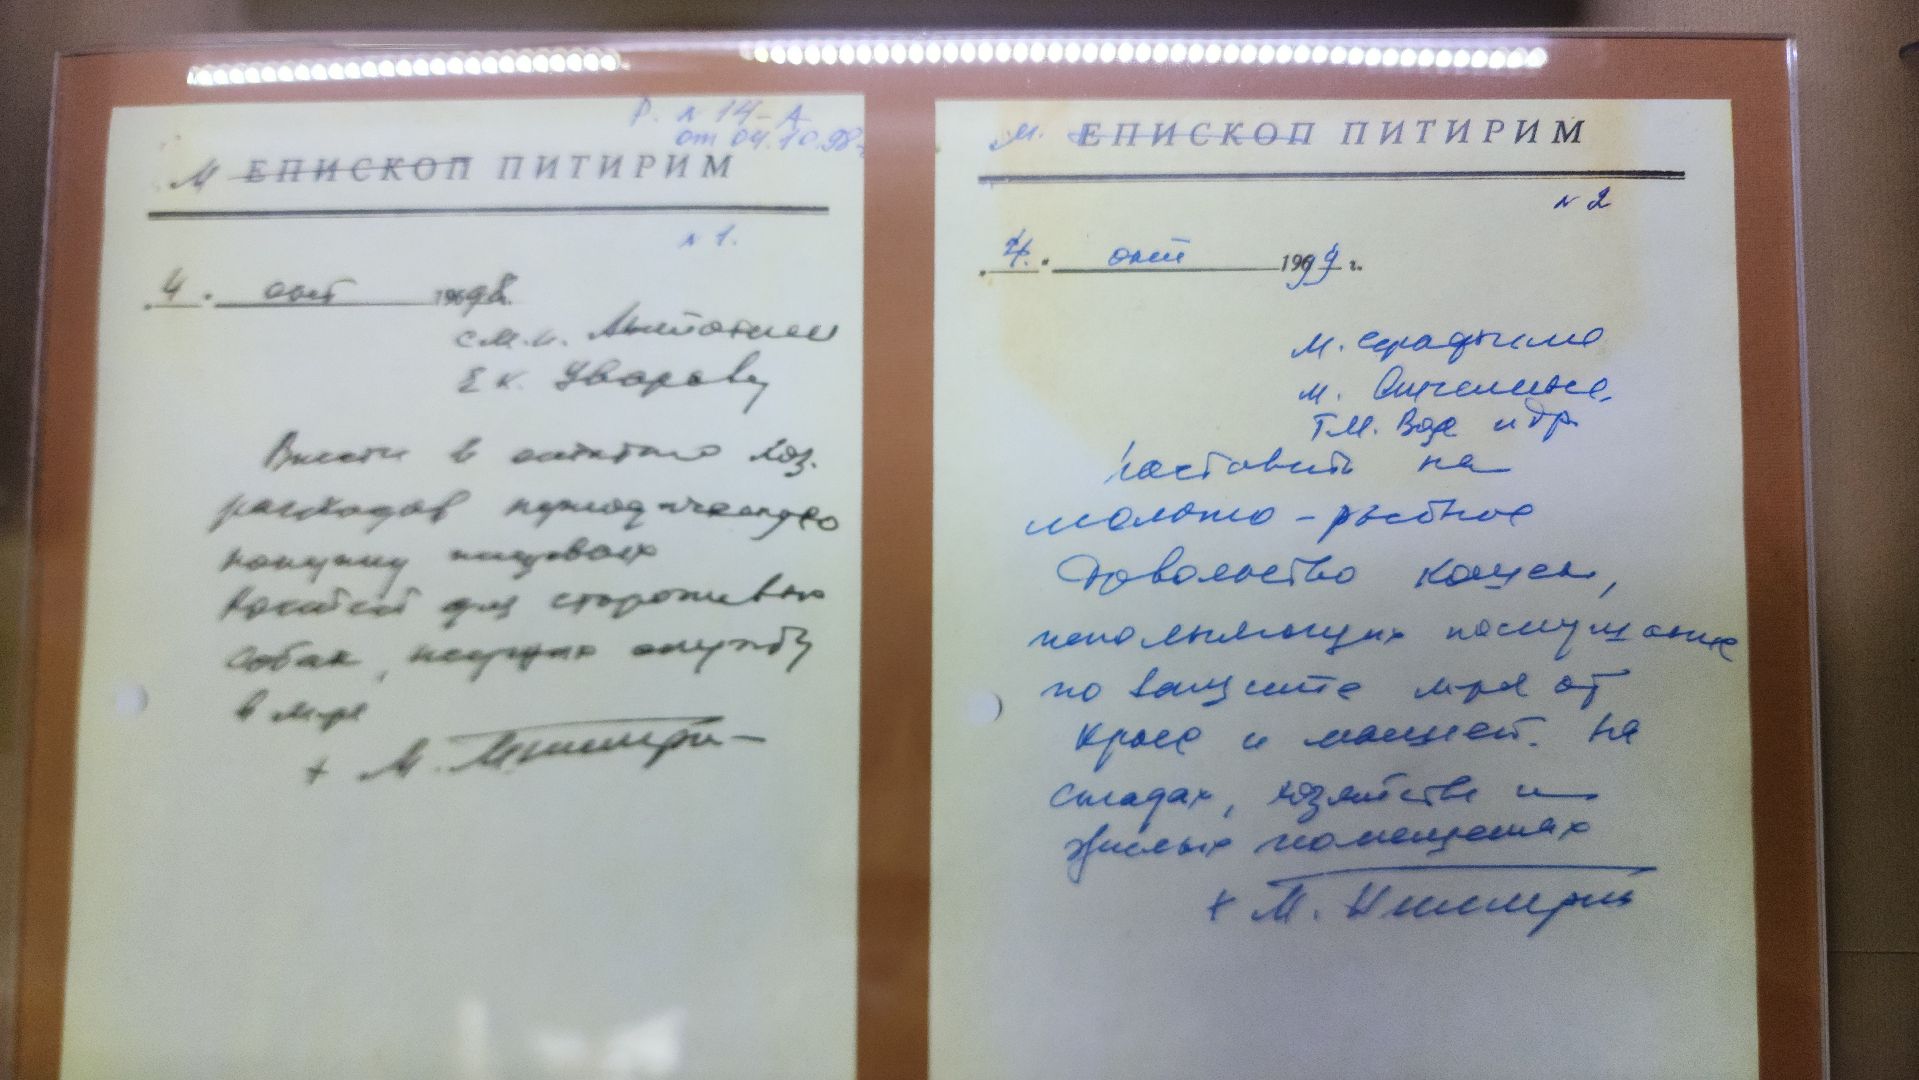 Р. N 14-А
от 04.10.98 г.
М ЕПИСКОП ПИТИРИМ
N 1.
4 . окт 1968 98.
см. н.
Е к. Уварову
Внести в хоз.
расходов периодическую
покупку пищевых
костей для сторожевых
собак, несущих службу
в м-ре
+ М. Питирим
М. ЕПИСКОП ПИТИРИМ
N 2
4. . окт 1999 г.
м. Серафиме
м. Ангелине,
Т.М. Вязе и др.
поставить на
молочно-рыбное
довольствие кошек,
исполняющих послушание
по защите м-ря от
крыс и мышей. На
складах, хозяйстве и
жилых помещениях
+ М. Питирим